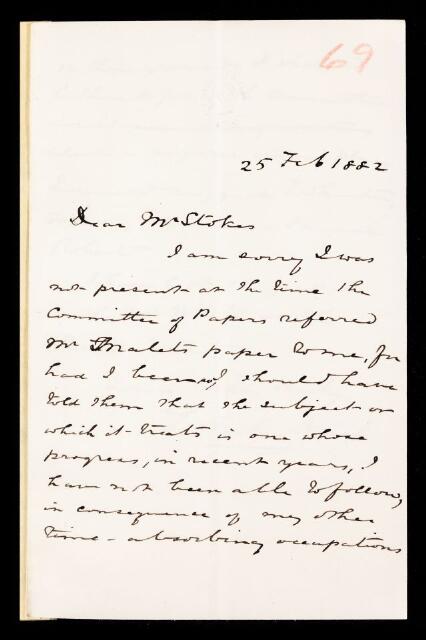 69
25 Feb 1882
Dear Mr Stokes
I am sorry I was
not present at the time the
Committee of Papers referred
Mr Malets paper to me, for
had I been so, I should have
told them that the subject on
which it treats is one whose
progress, in recent years, I
have not been able to follow,
in consequence of my other
time-absorbing occupations